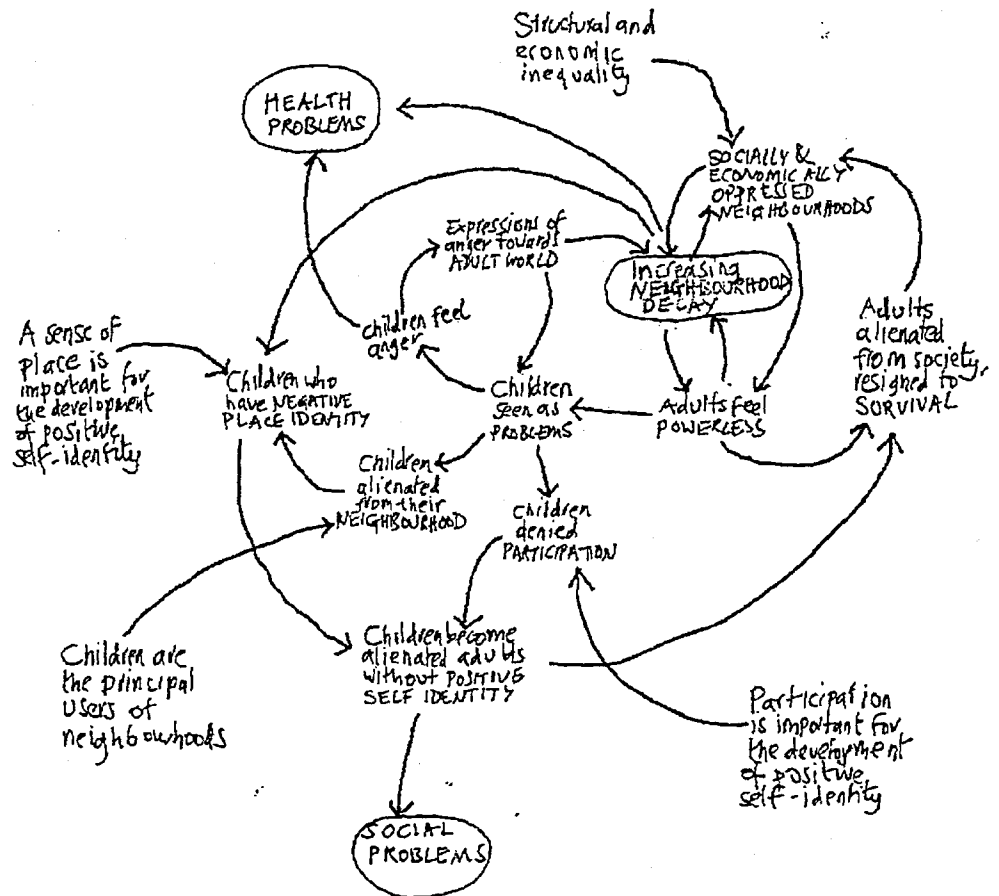 Structural and
economic
inequality
HEALTH
PROBLEMS
SOCIALLY &
ECONOMICALLY
OPPRESSED
NEIGHBOURHOODS
Expressions of
anger towards
ADULT WORLD
Increasing
NEIGHBOURHOOD
DECAY
Children feel
anger
Adults
alienated
from society,
resigned to
SURVIVAL
A sense of
place is
important for
the development
of positive
self-identity
Children who
have NEGATIVE
PLACE IDENTITY
Children
seen as
PROBLEMS
Adults feel
POWERLESS
Children
alienated
from their
NEIGHBOURHOOD
Children
denied
PARTICIPATION
Children become
alienated adults
without POSITIVE
SELF IDENTITY
Children are
the principal
users of
neighbourhoods
Participation
is important for
the development
of positive
self-identity
SOCIAL
PROBLEMS